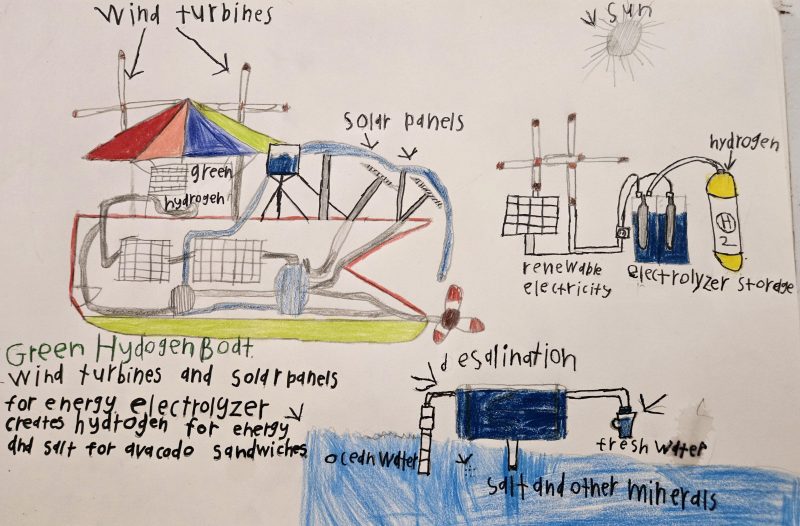 Wind turbines
Sun
solar panels
hydrogen
green
hydrogen
H
2
renewable
electricity
electrolyzer storage
Green Hydogen Boat
wind turbines and solar panels
for energy electrolyzer
creates hydrogen for energy
and salt for avacado sandwiches
desalination
ocean water
fresh water
salt and other minerals